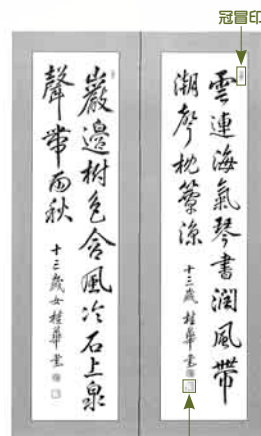 冠冒印
雲連海氣琴書潤風帶
潮聲枕簟涼
十三歳 桂華書
巖邊樹色含風冷石上泉
聲帶雨秋
十三歳女桂華書